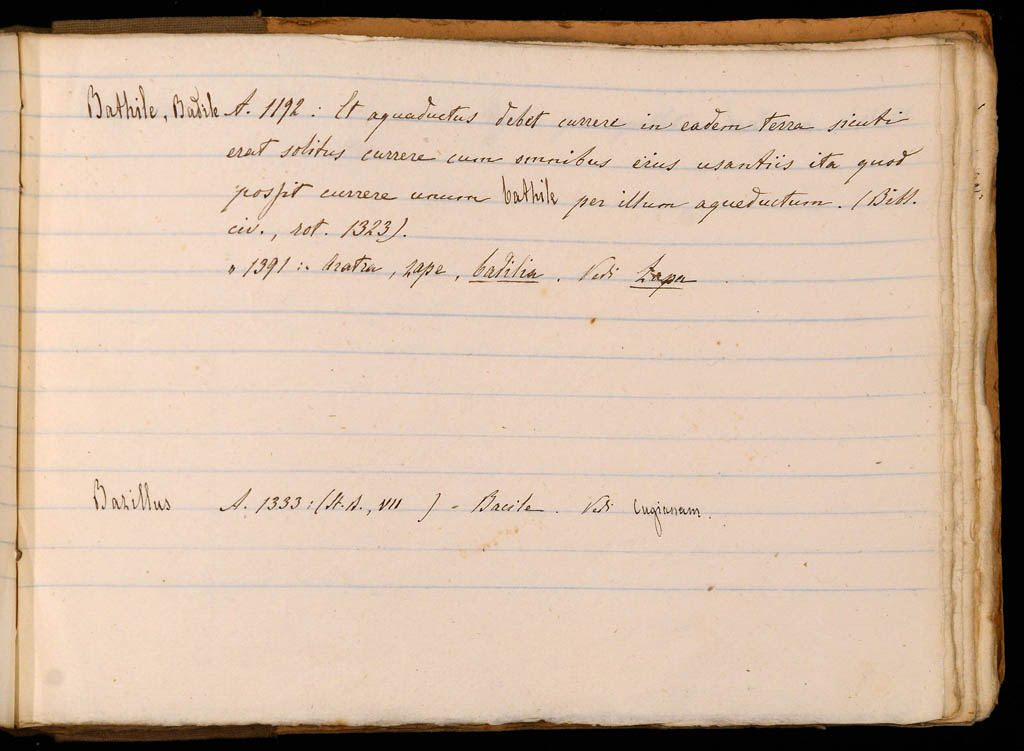 Bathile, Badile A. 1192 : Et aquaductus debet currere in eadem terra sicuti
erat solitus currere cum omnibus eius usantiis ita quod
possit currere unum bathile per illum aqueductum. (Bibl.
civ., rot. 1323).
" 1391 :- Aratra, zape, badilia. Vedi Zapa
Bazillus A. 1333 : (St. A., VII ) - Bacile. Vedi